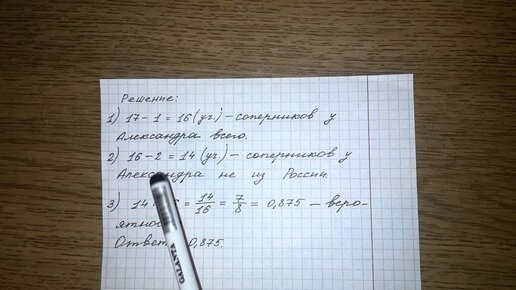 Решение:
1) 17 - 1 = 16 (уч.) - соперников у
Александра всего.
2) 16 - 2 = 14 (уч.) - соперников у
Александра не из России.
3) 14 = 14/16 = 7/8 = 0,875 - веро-
Ответ 0,875.
GALANTA